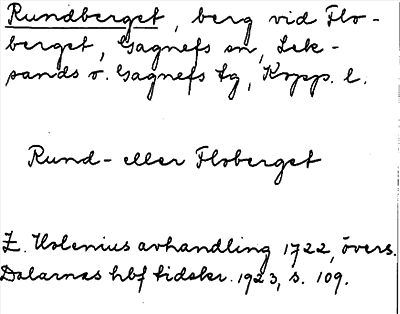 Rundberget, berg vid Flo-
berget, Gagnefs sn, Lek-
sands o. Gagnefs tg, Kopp. l.
Rund- eller Floberget
E. Holenius avhandling 1722, övers.
Dalarnas hbf tidskr. 1923, s. 109.